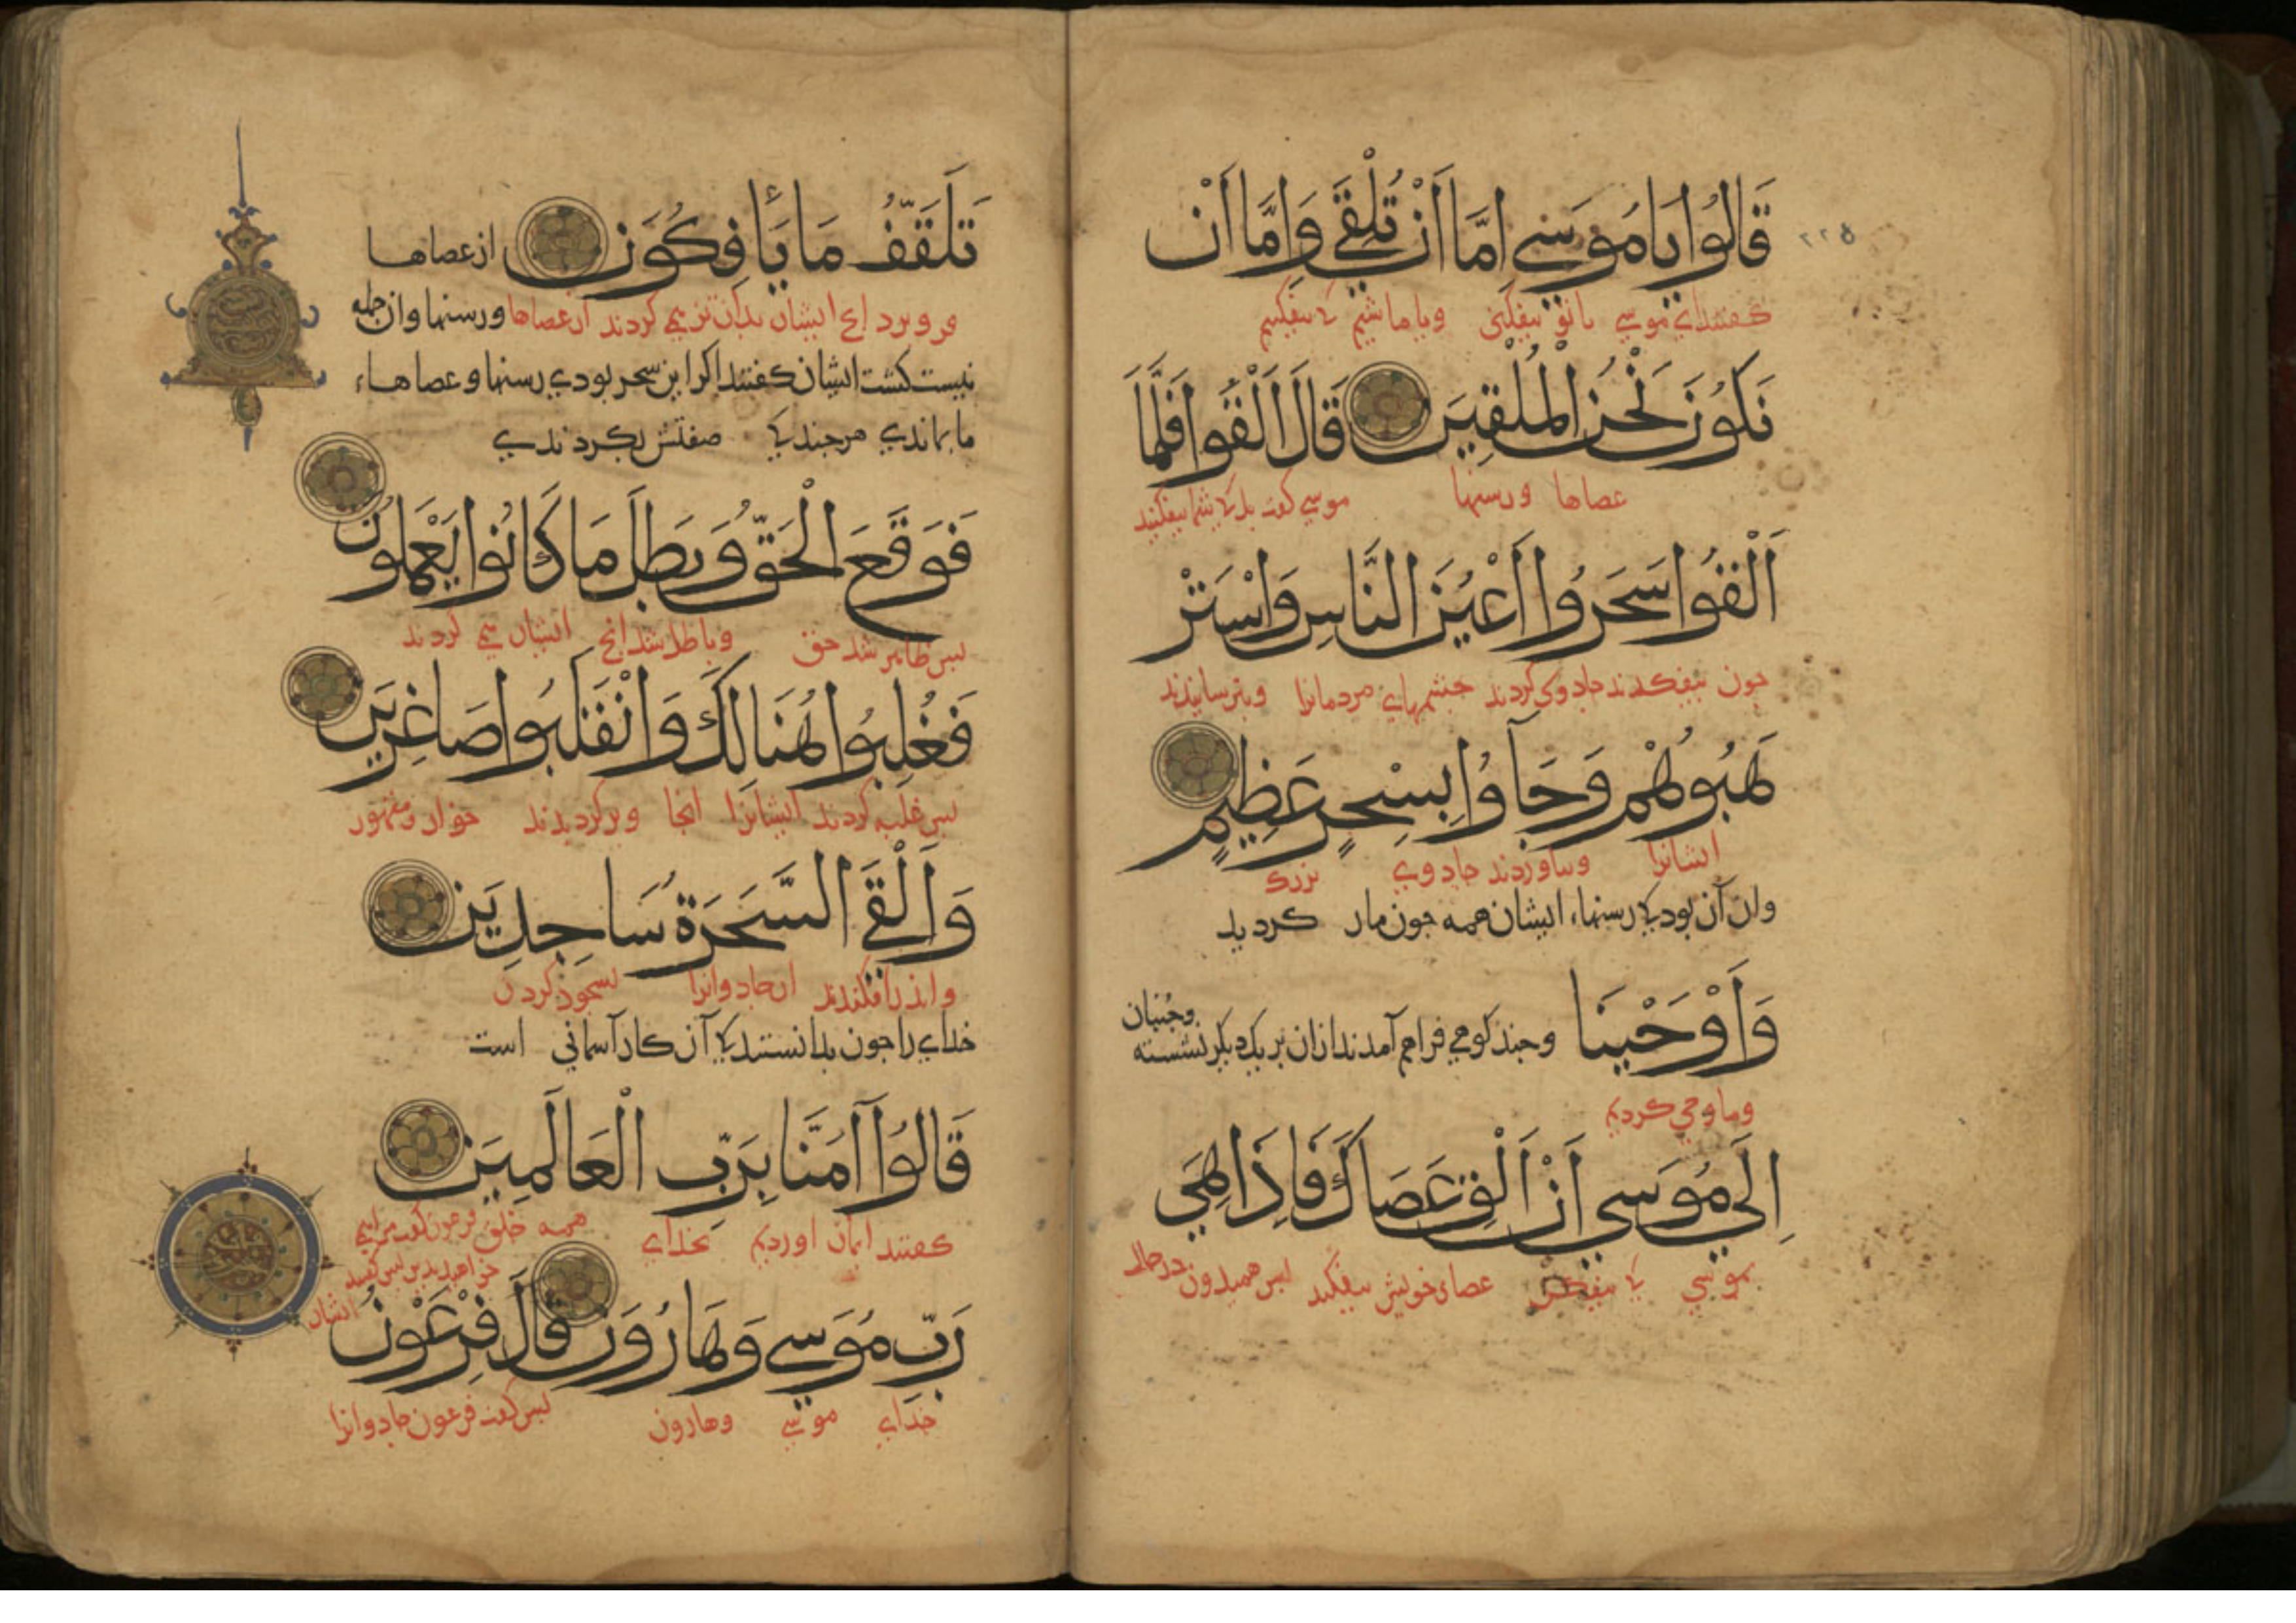 قَالُوا يَا مُوسَي اِمَّا اَنْ تُلْقَيَ وَاِمَّا اَنْ
٢٢٥
كفتند اي موسي يا تو بيفكني ويا ما باشيم كه بيفكنيم
نَكُونَ نَحْنُ الْمُلْقِينَ قَالَ اَلْقُوا فَلَمَّا
عصاها ورسنها موسي كفت بل كه شما بيفكنيد
اَلْقَوُا سَحَرُوا اَعْيُنَ النَّاسِ وَاسْتَرْ
جون بيفكندند جادوي كردند جشمهاي مردمانرا وبترسانيدند
هَبُوهُمْ وَجَآوُا بِسِحْرٍ عَظِيمٍ
ايشانرا وبياوردند جادوي بزرك
وان آن بود كه رسنهاء ايشان همه جون مار كرديد
وَاَوْحَيْنَا وجند كوهي فراهم آمدند ازان بر يك ديكر نشسته وجنبان
وما وحي كرديم
اِلَي مُوسَي اَنْ اَلْقِ عَصَاكَ فَاِذَا هِيَ
بموسي كه بيفكن عصاي خويش بيفكند پس هميدون در حال
تَلَقَّفُ مَا يَأفِكُونَ از عصاها
فرو برد انج ايشان بدان تزوير مي كردند از عصاها ورسنها وان جمله
نيست كشت ايشان كفتند اكر اين سحر بودي رسنها وعصاهاء
ما بماندي هرجند كه صفتش بكردندي
فَوَقَعَ الْحَقُّ وَبَطَلَ مَا كَانُوا يَعْمَلُونَ
پس ظاهر شد حق وباطل شد انج ايشان مي كردند
فَغُلِبُوا هُنَالِكَ وَانْقَلَبُوا صَاغِرِينَ
پس غلبه كردند ايشانرا انجا وبركرديدند خوار ومقهور
وَاُلْقِيَ السَّحَرَةُ سَاجِدِينَ
واندر افكندند ان جادوانرا بسجود كردن
خداي را جون بدانستند كه آن كار آسماني است
قَالُوا آمَنَّا بِرَبِّ الْعَالَمِينَ
كفتند ايمان اورديم بخداي همه خلق فرعون كفت مرا مي
خواهيد بدين پس كفتند
ايشان
رَبِّ مُوسَي وَهَارُونَ قَالَ فِرْعَوْنُ
خداي موسي وهارون پس كفت فرعون جادوانرا